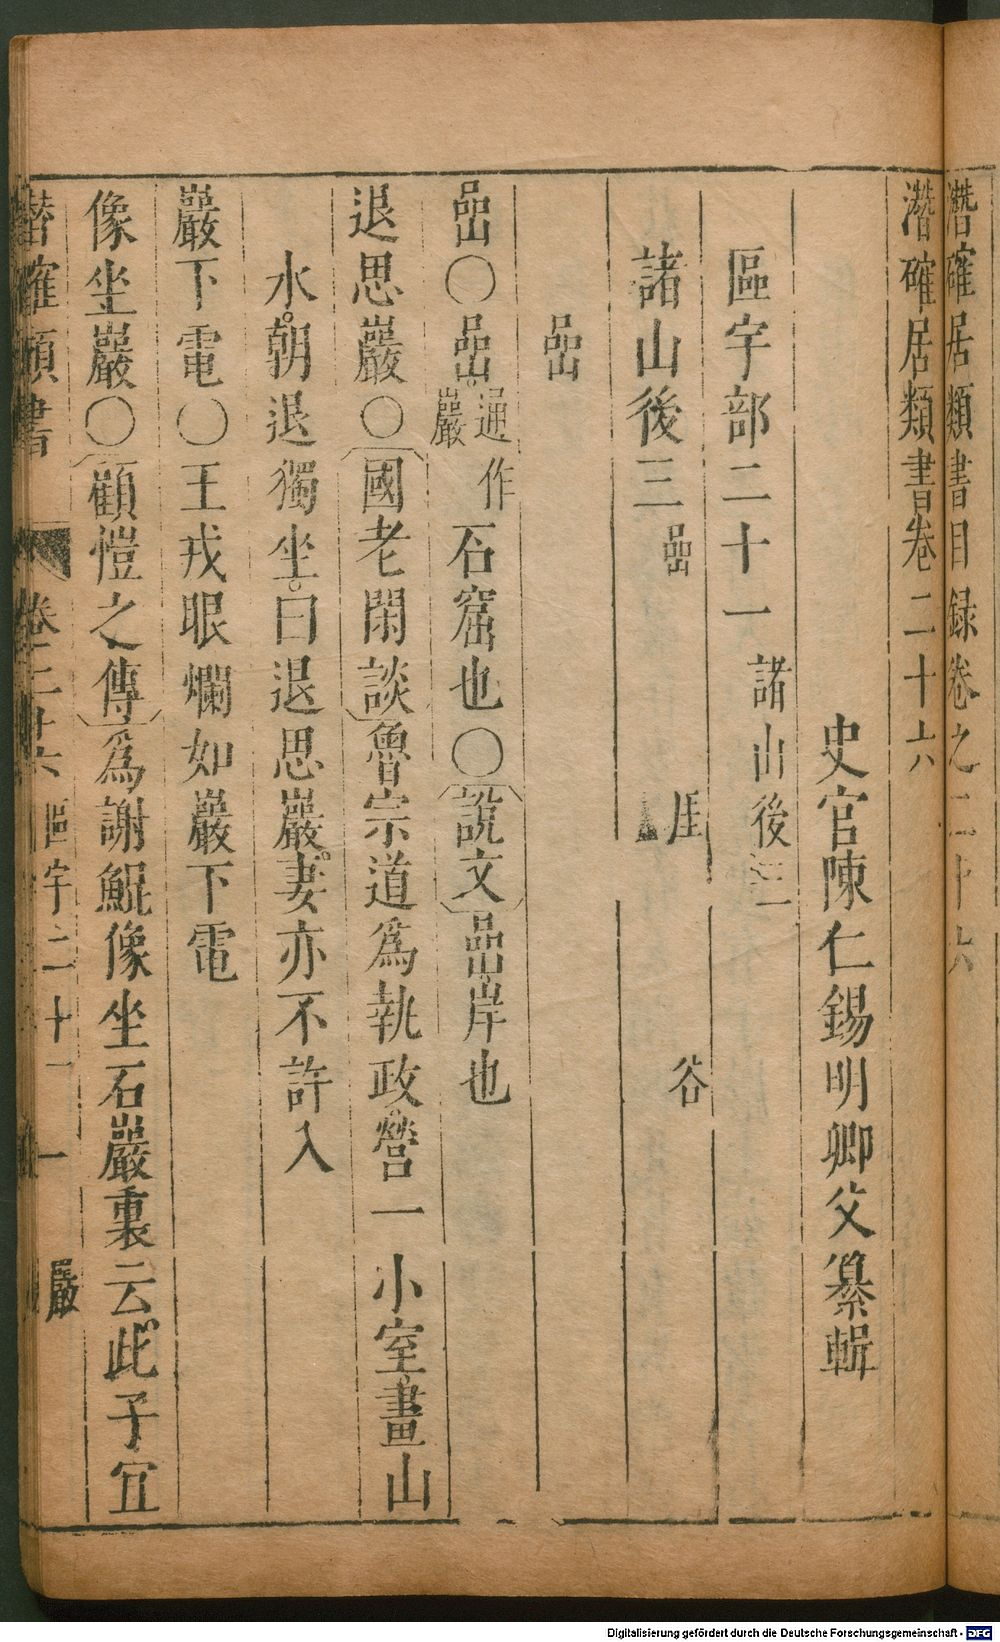 潛確居類書目録卷之二十六
潛確居類書卷二十六
史官陳仁錫明卿父纂輯
區宇部二十一 諸山後三
諸山後三 嵒 厓 谷
嵒
嵒〇嵒通作巖石窟也〇說文嵒岸也
退思巖〇國老閑談魯宗道為執政營一小室畫山
水朝退獨坐曰退思巖妻亦不許入
巖下電〇王戎眼爛如巖下電
像坐巖〇顧愷之傳為謝鯤像坐石巖裏云此子宜
潛確類書 卷二十六 區宇二十一 一 巖
Digitalisierung gefördert durch die Deutsche Forschungsgemeinschaft - DFG